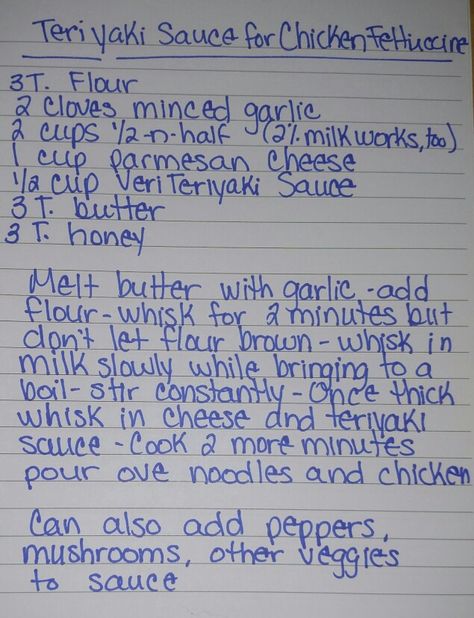 Teriyaki Sauce for Chicken Fettuccine
3 T. Flour
2 cloves minced garlic
2 cups 1/2-n-half (2% milk works, too)
1 cup parmesan cheese
1/2 cup Veri Teriyaki Sauce
3 T. butter
3 T. honey
Melt butter with garlic - add
flour - whisk for 2 minutes but
don't let flour brown - whisk in
milk slowly while bringing to a
boil - stir constantly - Once thick
whisk in cheese and teriyaki
sauce - Cook 2 more minutes
pour ove noodles and chicken
Can also add peppers,
mushrooms, other veggies
to sauce